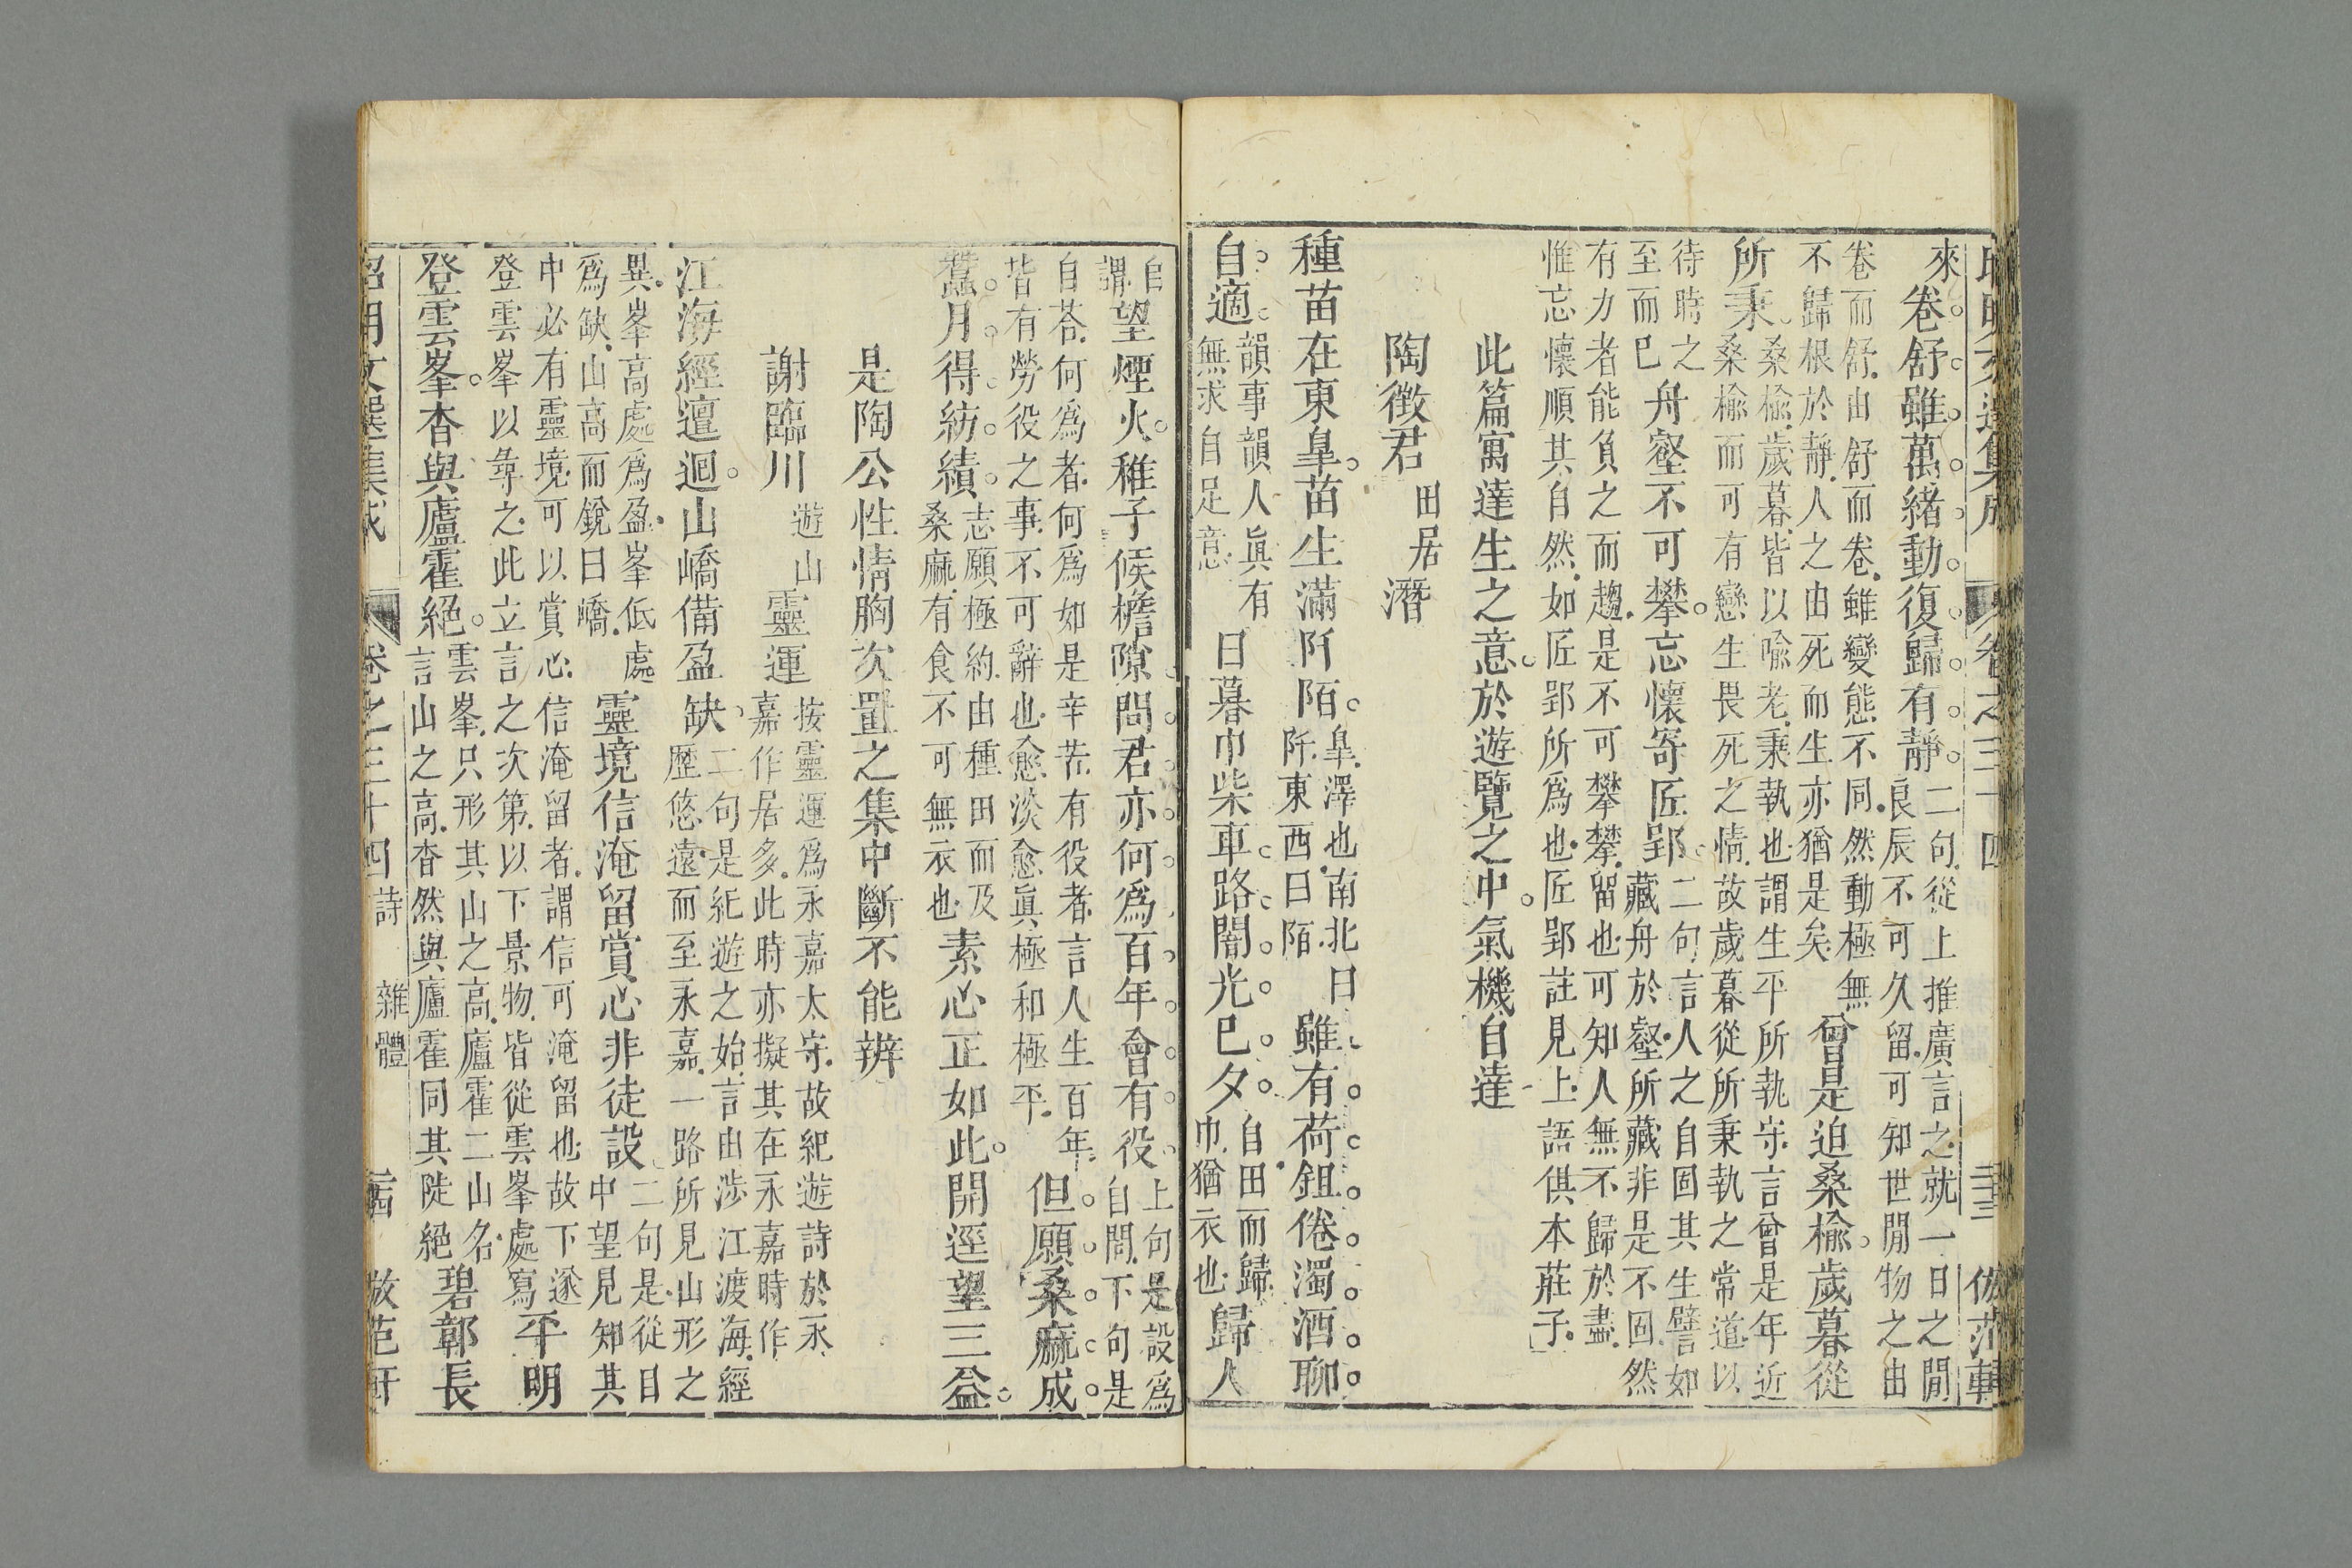 昭明文選集成 卷之三十四 三十三 仿范軒
來卷舒雖萬緒動復歸有靜
二句從上推廣言之就一日之閒
良辰不可久留可知世閒物之由
卷而舒由舒而卷雖變態不同然動極無
不歸根於靜人之由死而生亦猶是矣
曾是迫桑榆歲暮從
所秉
桑榆歲暮皆以喻老秉執也謂生平所執守言曾是年近
桑榆而可有戀生畏死之情故歲暮從所秉執之常道以
待時之
至而已
舟壑不可攀忘懷寄匠郢
二句言人之自固其生譬如
藏舟於壑所藏非是不固然
有力者能負之而趨是不可攀攀留也可知人無不歸於盡
惟忘懷順其自然如匠郢所爲也匠郢註見上語俱本莊子
此篇寓達生之意於遊覽之中氣機自達
陶徵君 田居 潛
種苗在東皐苗生滿阡陌
皐澤也南北曰
阡東西曰陌
雖有荷鉏倦濁酒聊
自適
韻事韻人眞有
無求自足意
日暮巾柴車路闇光已夕
自田而歸
巾猶衣也
歸人
自
謂
望煙火稚子候檐隙問君亦何爲百年會有役
上句是設爲
自問下句是
自荅何爲者何爲如是辛苦有役者言人生百年
皆有勞役之事不可辭也愈淡愈眞極和極平
但願桑麻成
蠶月得紡績
志願極約由種田而及
桑麻有食不可無衣也
素心正如此開逕望三益
是陶公性情胸次置之集中斷不能辨
謝臨川 遊山 靈運
按靈運爲永嘉太守故紀遊詩於永
嘉作居多此時亦擬其在永嘉時作
江海經邅迴山嶠備盈缺
二句是紀遊之始言由涉江渡海經
歷悠遠而至永嘉一路所見山形之
異峯高處爲盈峯低處
爲缺山高而銳曰嶠
靈境信淹留賞心非徒設
二句是從目
中望見知其
中必有靈境可以賞心信淹留者謂信可淹留也故下遂
登雲峯以尋之此立言之次第以下景物皆從雲峯處寫
平明
登雲峯杳與廬霍絕
雲峯只形其山之高廬霍二山名
言山之高杳然與廬霍同其陡絕
碧鄣長
昭明文選集成 卷之三十四 詩 雜體 三十四 仿范軒